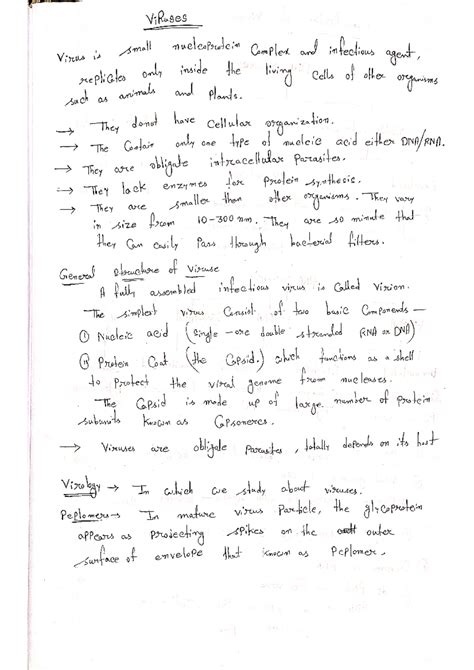 ViRuses
Virus is small nucleoprotein Complex and infectious agent,
replicates only inside the living Cells of other organisms
such as animals and Plants.
→ They donot have Cellular organization.
→ The Contain only one type of nucleic acid either DNA/RNA.
→ They are obligate intracellular Parasites.
→ They lack enzymes for Protein synthesis.
→ They are smaller than other organisms. They vary
in size from 10-300 nm. They are so minute that
they Can easily Pass through bacterial filters.
General Structure of Viruse
A fully assembled infectious virus is Called Virion.
The simplest virus Consist of two basic Components -
① Nucleic acid (single - ore double stranded RNA or DNA)
② Protein Coat (the Capsid,) which functions as a shell
to Protect the viral genome from nucleases.
The Capsid is made up of large number of Protein
subunits known as Capsomeres.
→ Viruses are obligate Parasites, totally depends on its host
Virology → In which we study about viruses.
Peplomers → In mature virus Particle, the glycoprotein
appears as Projecting spikes on the outer
surface of envelope that known as Peplomer.